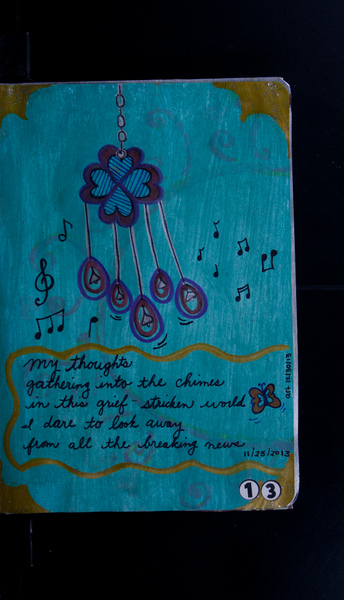 my thoughts
gathering into the chimes
in this grief-stricken world
I dare to look away
from all the breaking news
11/25/2013
art 12/30/13
1 3